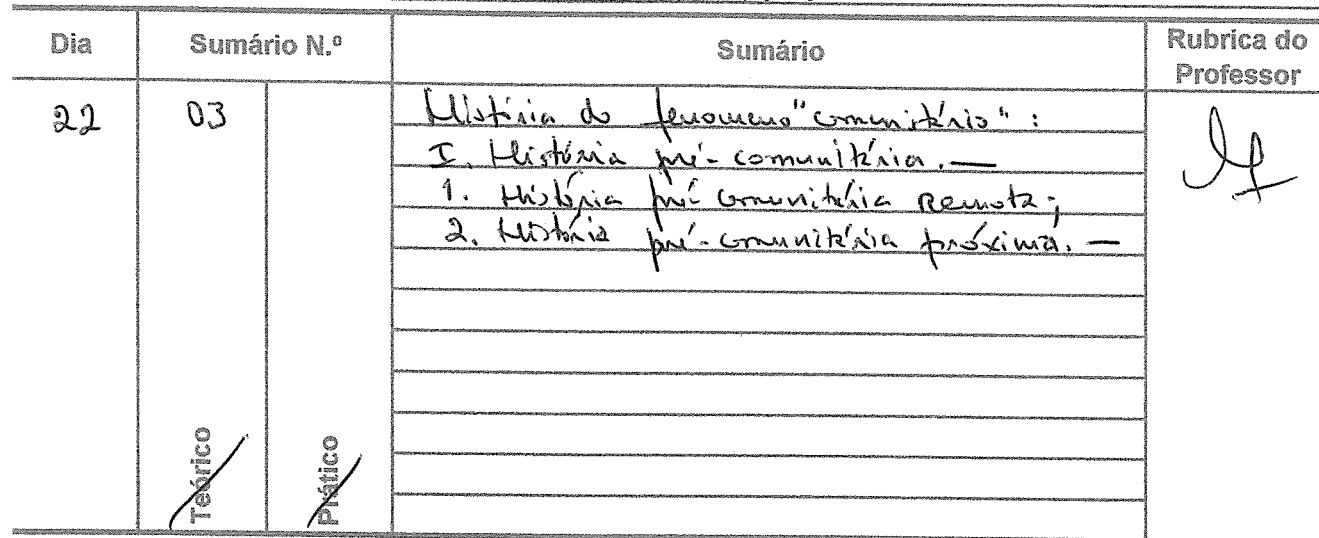 Dia Sumário N.º Sumário Rubrica do Professor
22 03 História do fenomeno "comunitário" :
I. História pré-comunitária. —
1. História pré comunitária Remota;
2. História pré-comunitária próxima. —
Teórico Prático